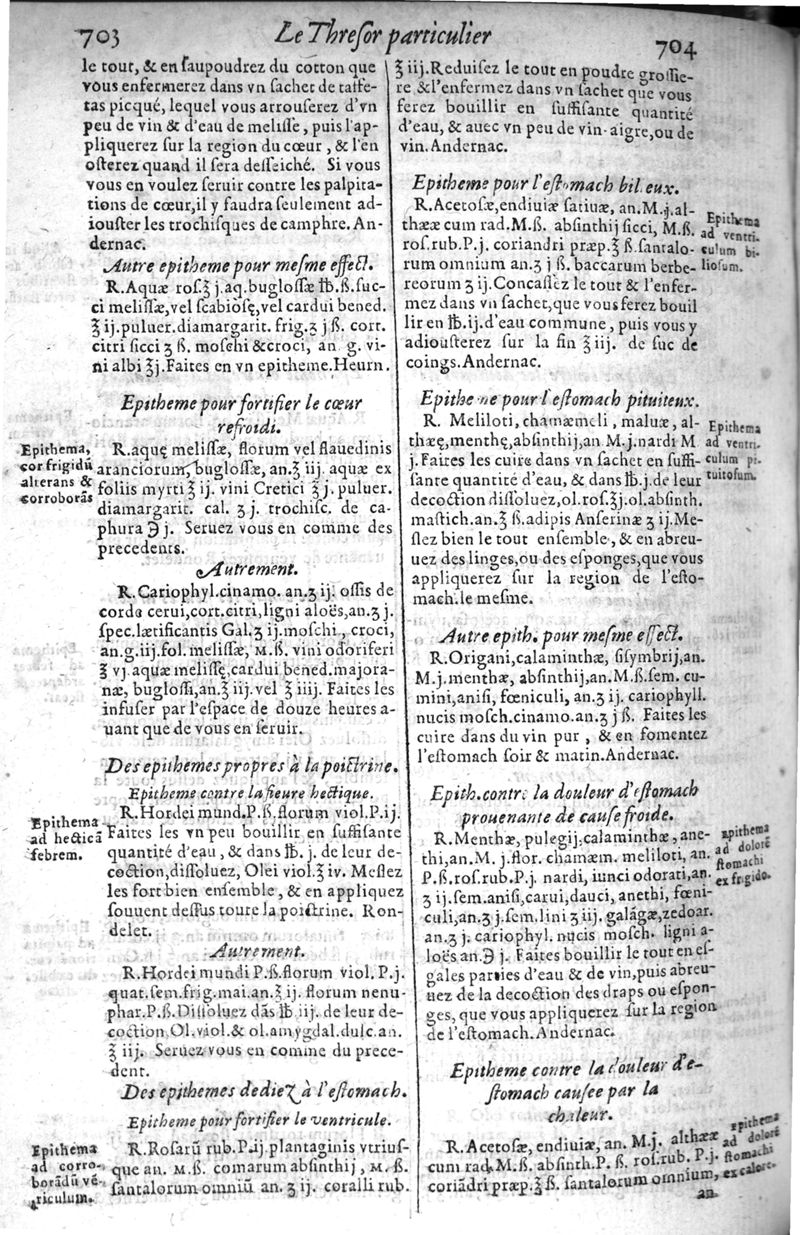 703
Le Thresor particulier
704
le tout, & en saupoudrez du cotton que
vous enfermerez dans vn sachet de taffe-
tas picqué, lequel vous arrouserez d'vn
peu de vin & d'eau de melisse, puis l'ap-
pliquerez sur la region du cœur, & l'en
osterez quand il sera desseiché. Si vous
vous en voulez seruir contre les palpita-
tions de cœur, il y faudra seulement ad-
iouster les trochisques de camphre. An-
dernac.
Autre epitheme pour mesme effect.
R. Aquæ ros. ℥ j. aq. buglossæ ℔. ß. suc-
ci melissæ, vel scabiosę, vel cardui bened.
℥ ij. puluer. diamargarit. frig. ʒ j ß. cort.
citri sicci ʒ ß. moschi & croci, an g. vi-
ni albi ℥j. Faites en vn epitheme. Heurn.
Epitheme pour fortifier le cœur
refroidi.
Epithema,
cor frigidū
alterans &
corroborās
R. aquę melissæ, florum vel flauedinis
aranciorum, buglossæ, an. ℥ iij. aquæ ex
foliis myrti ℥ ij. vini Cretici ℥ j. puluer.
diamargarit. cal. ʒ j. trochisc. de ca-
phura ℈ j. Seruez vous en comme des
precedents.
Autrement.
R. Cariophyl. cinamo. an. ʒ ij. ossis de
corde cerui, cort. citri, ligni aloës, an. ʒ j.
spec. lætificantis Gal. ʒ ij. moschi, croci,
an. g. iij. fol. melissæ, M. ß. vini odoriferi
℥ vj. aquæ melissę, cardui bened. majora-
næ, buglossi, an. ℥ iij. vel ℥ iiij. Faites les
infuser par l'espace de douze heures a-
uant que de vous en seruir.
Des epithemes propres à la poictrine.
Epitheme contre la fieure hectique.
Epithema
ad hecticā
febrem.
R. Hordei mund. P. ß. florum viol. P. ij.
Faites les vn peu bouillir en suffisante
quantité d'eau, & dans ℔. j. de leur de-
coction, dissoluez, Olei viol. ℥ iv. Meslez
les fort bien ensemble, & en appliquez
souuent dessus toute la poistrine. Ron-
delet.
Autrement.
R. Hordei mundi P. ß. florum viol. P. j.
quat. sem. frig. mai. an. ℥ ij. florum nenu-
phar. P. ß. Dissoluez dās ℔ ij. de leur de-
coction, Ol. viol. & ol. amygdal. dulc. an.
℥ iij. Seruez vous en comme du prece-
dent.
Des epithemes dediez à l'estomach.
Epitheme pour fortifier le ventricule.
Epithema
ad corro-
borādū vē-
triculum.
R. Rosarū rub. P. ij plantaginis vtrius-
que an. M. ß. comarum absinthij, M. ß.
santalorum omniū an. ʒ ij. coralli rub.
℥ iij. Reduisez le tout en poudre grossie-
re & l'enfermez dans vn sachet que vous
ferez bouillir en suffisante quantité
d'eau, & auec vn peu de vin-aigre, ou de
vin. Andernac.
Epitheme pour l'estomach bilieux.
Epithema
ad ventri-
culum bi-
liosum.
R. Acetosæ, endiuiæ satiuæ, an. M. j. al-
thææ cum rad. M. ß. absinthij sicci, M. ß.
ros. rub. P. j. coriandri præp. ℥ ß. santalo-
rum omnium an. ʒ j ß. baccarum berbe-
reorum ʒ ij. Concassez le tout & l'enfer-
mez dans vn sachet, que vous ferez bouil
lir en ℔. ij. d'eau commune, puis vous y
adiousterez sur la fin ℥ iij. de suc de
coings. Andernac.
Epitheme pour l'estomach pituiteux.
Epithema
ad ventri-
culum pi-
tuitosum.
R. Meliloti, chamæmeli, maluæ, al-
thæę, menthę, absinthij, an M. j. nardi M
j. Faites les cuire dans vn sachet en suffi-
sante quantité d'eau, & dans ℔. j. de leur
decoction dissoluez, ol. ros. ℥j. ol. absinth.
mastich. an. ℥ ß. adipis Anserinæ ʒ ij. Me-
slez bien le tout ensemble, & en abreu-
uez des linges, ou des esponges, que vous
appliquerez sur la region de l'esto-
mach. le mesme.
Autre epith. pour mesme effect.
R. Origani, calaminthæ, sisymbrij, an.
M. j. menthæ, absinthij, an. M. ß. sem. cu-
mini, anisi, fœniculi, an. ʒ ij. cariophyll.
nucis mosch. cinamo. an. ʒ j ß. Faites les
cuire dans du vin pur, & en fomentez
l'estomach soir & matin. Andernac.
Epith. contre la douleur d'estomach
prouenante de cause froide.
epithema
ad dolorē
stomachi
ex frigido.
R. Menthæ, pulegij, calaminthæ, ane-
thi, an. M. j. flor. chamæm. meliloti, an.
P. ß. ros. rub. P. j. nardi, iunci odorati, an.
ʒ ij. sem. anisi, carui, dauci, anethi, fœni-
culi, an. ʒ j. sem. lini ʒ iij. galāgæ, zedoar.
an. ʒ j. cariophyl. nucis mosch. ligni a-
loës an. ℈ j. Faites bouillir le tout en es-
gales parties d'eau & de vin, puis abreu-
uez de la decoction des draps ou espon-
ges, que vous appliquerez sur la region
de l'estomach. Andernac.
Epitheme contre la douleur d'e-
stomach causee par la
chaleur.
epithema
ad dolorē
stomachi
ex calore.
R. Acetosæ, endiuiæ, an. M. j. altheæ
cum rad. M. ß. absinth. P. ß. ros. rub. P. j.
coriādri præp. ℥ ß. santalorum omnium,
an.